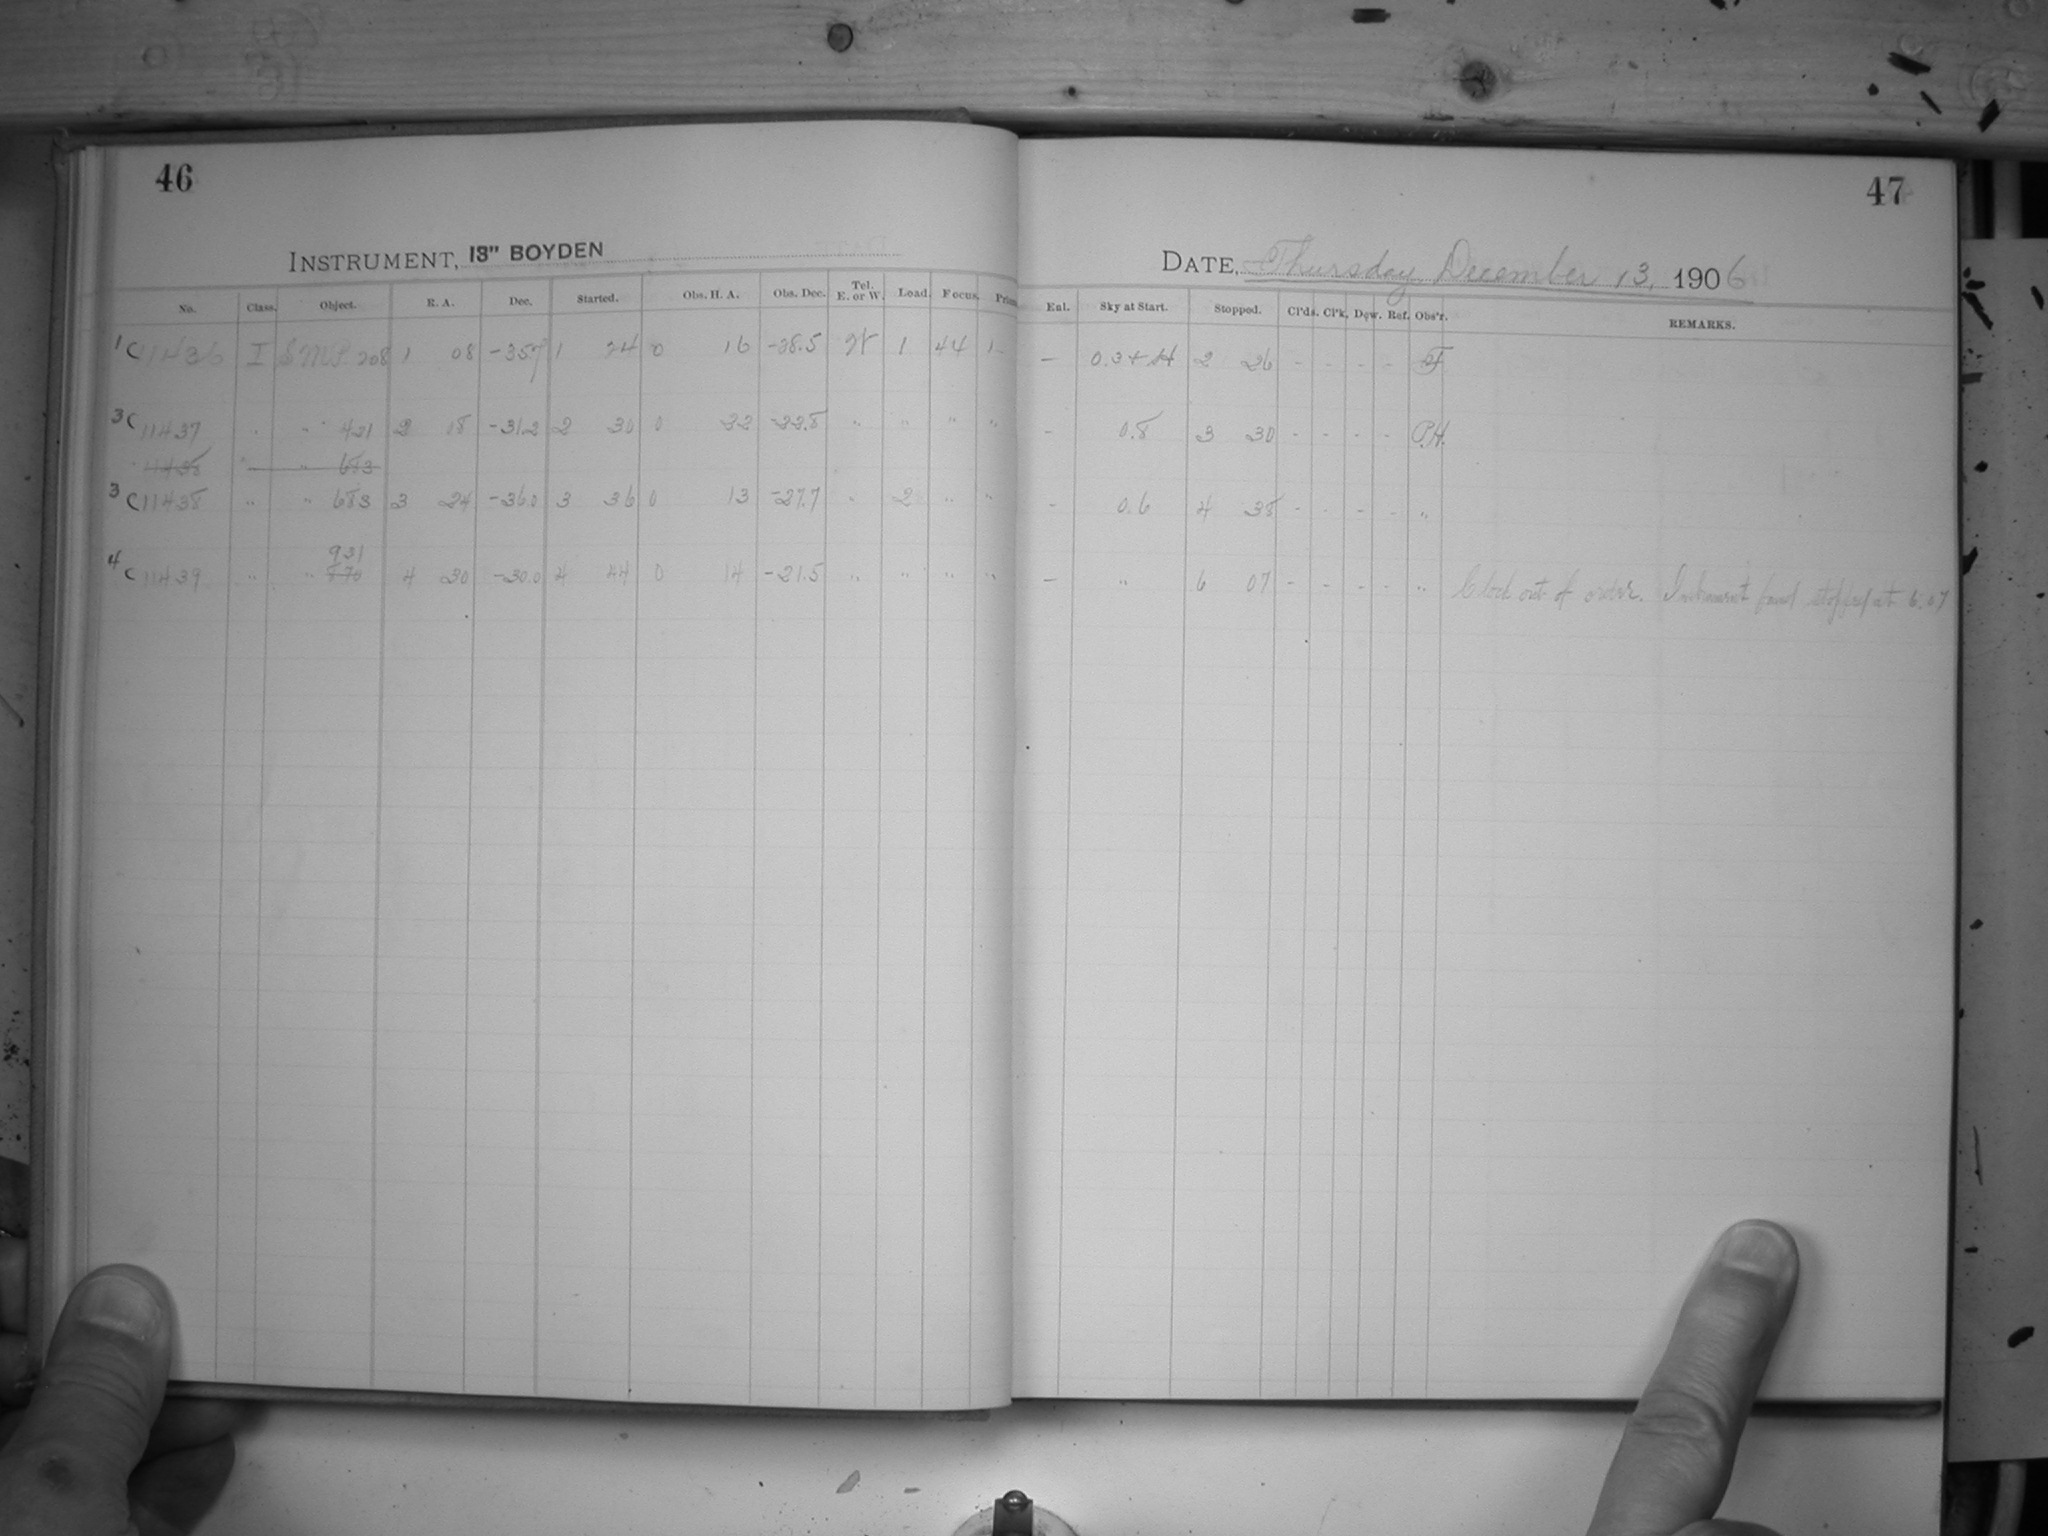 46
INSTRUMENT, 13" BOYDEN
No. Class. Object. R. A. Dec. Started. Obs. H. A. Obs. Dec. Tel. E. or W. Load. Focus. Prism
1 C 11436 I S.M.P. 208 1 08 -35.7 1 24 0 16 -28.5 W 1 44 1
3 C 11437 " " 421 2 08 -31.2 2 30 0 22 -23.8 " " " "
11438 " 683
3 C 11438 " " 683 3 24 -36.0 3 36 0 13 -27.7 " 2 " "
931
4 C 11439 " " 870 4 30 -30.0 4 44 0 14 -21.5 " " " "
47
DATE, Thursday December 13, 1906
Enl. Sky at Start. Stopped. Cl'ds. Cl'k. Dew. Ref. Obs'r. REMARKS.
- 2 26 - - - -
- 0.8 3 30 - - - - P.H.
- 0.6 4 38 - - - - "
- " 6 07 - - - - " Clock out of order. Instrument found stopped at 6.07